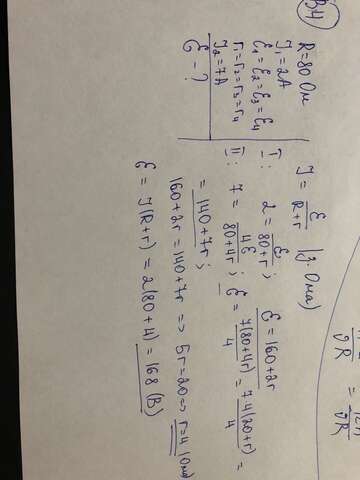 В4
R=80 Ом
I₁=2А
ε₁=ε₂=ε₃=ε₄
r₁=r₂=r₃=r₄
I₂=7А
ε - ?
I = ε/(R+r) (з. Ома)
I: 2 = ε/(80+r); ε = 160+2r
II: 7 = 4ε/(80+4r); ε = 7(80+4r)/4 = 7·4(20+r)/4 =
= 140+7r;
160+2r = 140+7r => 5r=20 => r=4 (Ом)
ε = I(R+r) = 2(80+4) = 168 (В)